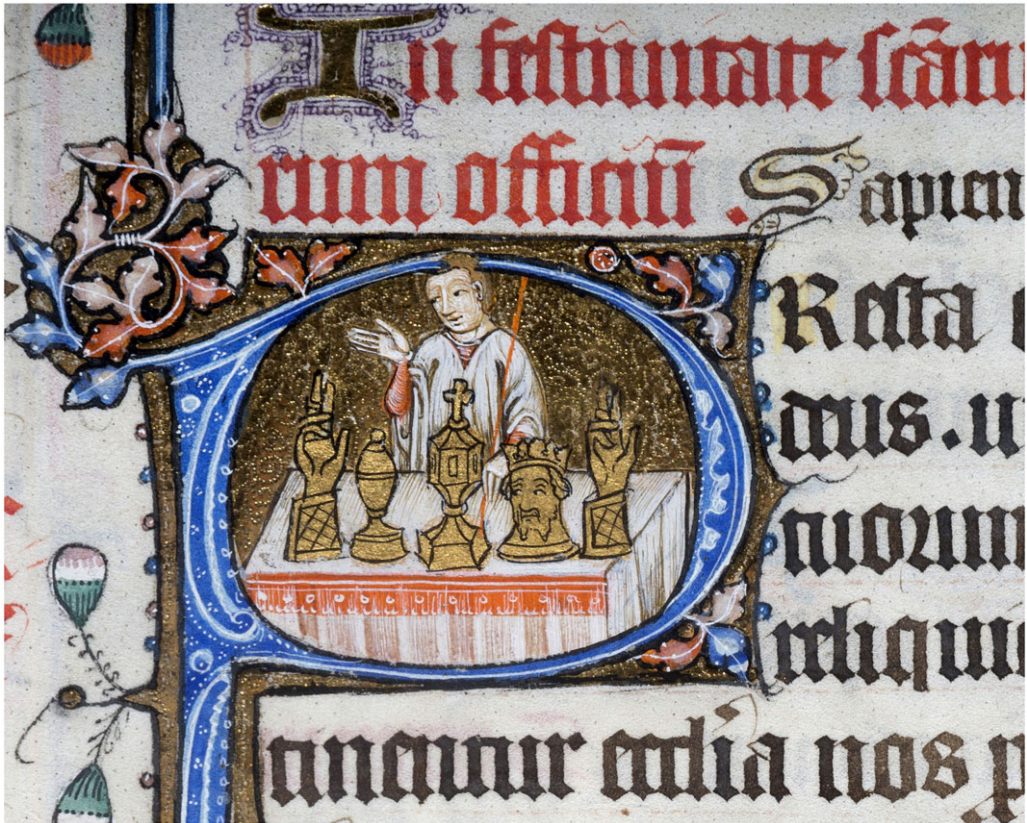 In festiuitate scāru
rum officiū . Sapien
PResta
deus . u
tuorum
reliquie
tinentur ecclia nos p